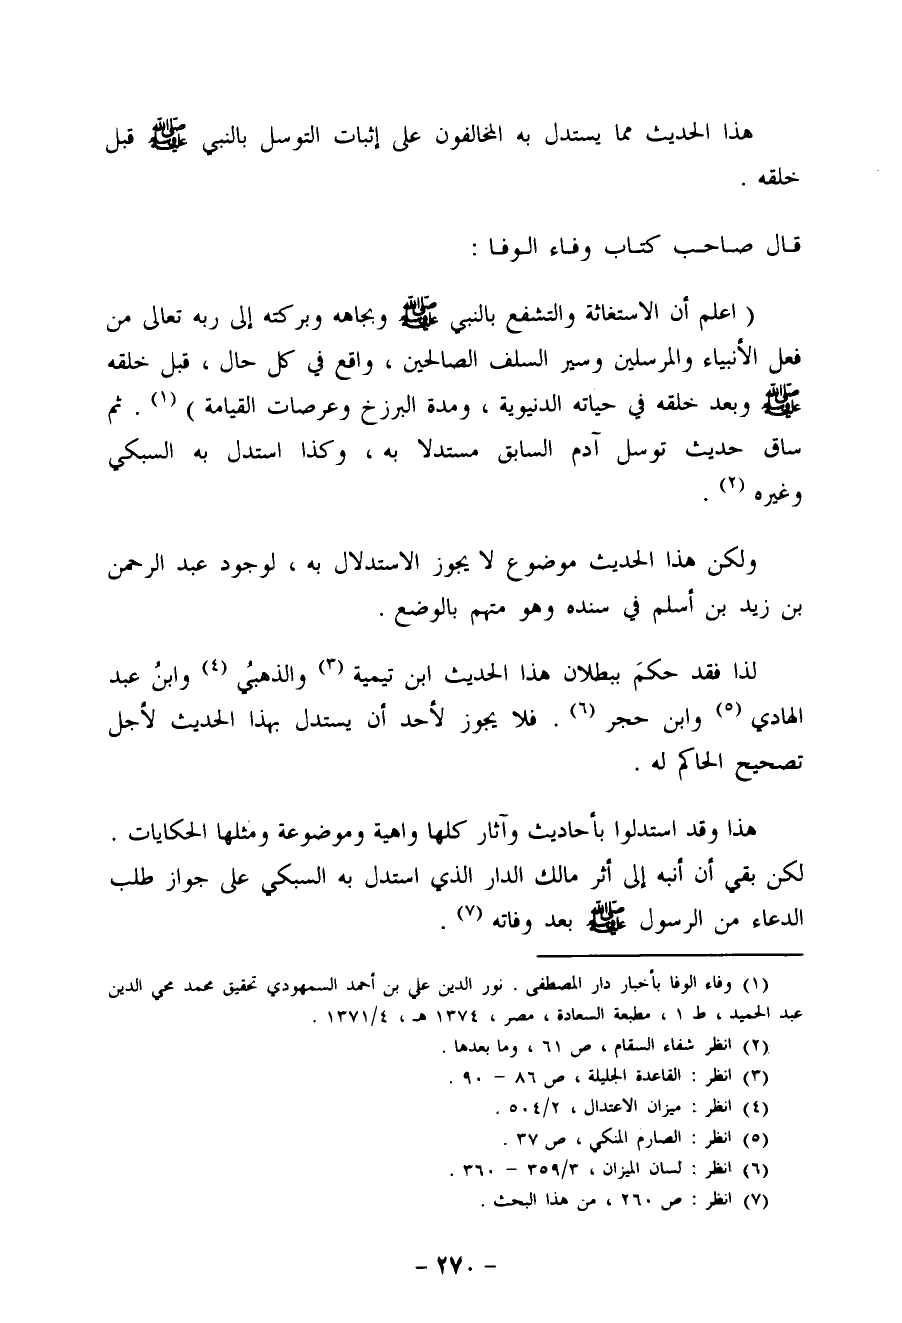 هذا الحديث مما يستدل به المخالفون على إثبات التوسل بالنبي ﷺ قبل
خلقه .
قال صاحب كتاب وفاء الوفا :
( اعلم أن الاستغاثة والتشفع بالنبي ﷺ وبجاهه وبركته إلى ربه تعالى من
فعل الأنبياء والمرسلين وسير السلف الصالحين ، واقع في كل حال ، قبل خلقه
ﷺ وبعد خلقه في حياته الدنيوية ، ومدة البرزخ وعرصات القيامة ) (١) . ثم
ساق حديث توسل آدم السابق مستدلا به ، وكذا استدل به السبكي
وغيره (٢) .
ولكن هذا الحديث موضوع لا يجوز الاستدلال به ، لوجود عبد الرحمن
بن زيد بن أسلم في سنده وهو متهم بالوضع .
لذا فقد حكمَ ببطلان هذا الحديث ابن تيمية (٣) والذهبيُ (٤) وابنُ عبد
الهادي (٥) وابن حجر (٦) . فلا يجوز لأحد أن يستدل بهذا الحديث لأجل
تصحيح الحاكم له .
هذا وقد استدلوا بأحاديث وآثار كلها واهية وموضوعة ومثلها الحكايات .
لكن بقي أن أنبه إلى أثر مالك الدار الذي استدل به السبكي على جواز طلب
الدعاء من الرسول ﷺ بعد وفاته (٧) .
(١) وفاء الوفا بأخبار دار المصطفى . نور الدين علي بن أحمد السمهودي تحقيق محمد محي الدين
عبد الحميد ، ط ١ ، مطبعة السعادة ، مصر ، ١٣٧٤ هـ ، ١٣٧١/٤ .
(٢) انظر شفاء السقام ، ص ٦١ ، وما بعدها .
(٣) انظر : القاعدة الجليلة ، ص ٨٦ – ٩٠ .
(٤) انظر : ميزان الاعتدال ، ٥٠٤/٢ .
(٥) انظر : الصارم المنكي ، ص ٣٧ .
(٦) انظر : لسان الميزان ، ٣٥٩/٣ – ٣٦٠ .
(٧) انظر : ص ٢٦٠ ، من هذا البحث .
– ٢٧٠ –